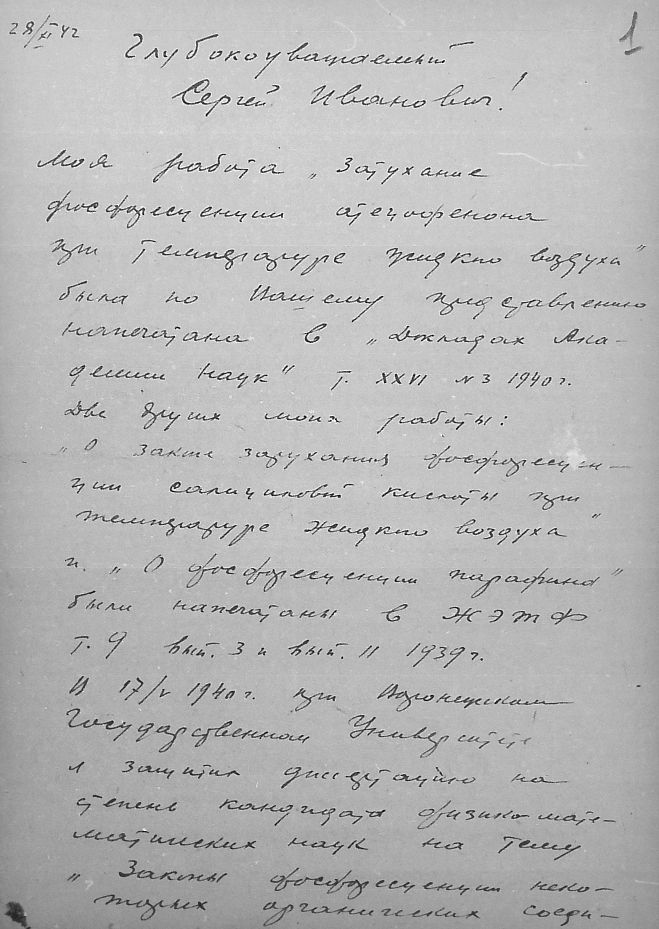 28/XI 42
1
Глубокоуважаемый
Сергей Иванович!
Моя работа „Затухание
фосфоресценции ацетофенона
при температуре жидкого воздуха"
была по Вашему представлению
напечатана в „Докладах Ака-
демии Наук" т. XXVI №3 1940г.
Две других моих работы:
„О законе затухания фосфоресцен-
ции салициловой кислоты при
температуре жидкого воздуха"
и „О фосфоресценции парафина"
были напечатаны в ЖЭТФ
т. 9 вып. 3 и вып. 11 1939г.
В 17/V 1940г. при Воронежском
Государственном Университете
я защитил диссертацию на
степень кандидата физико-мате-
матических наук на тему
„Законы фосфоресценции неко-
торых органических соеди-